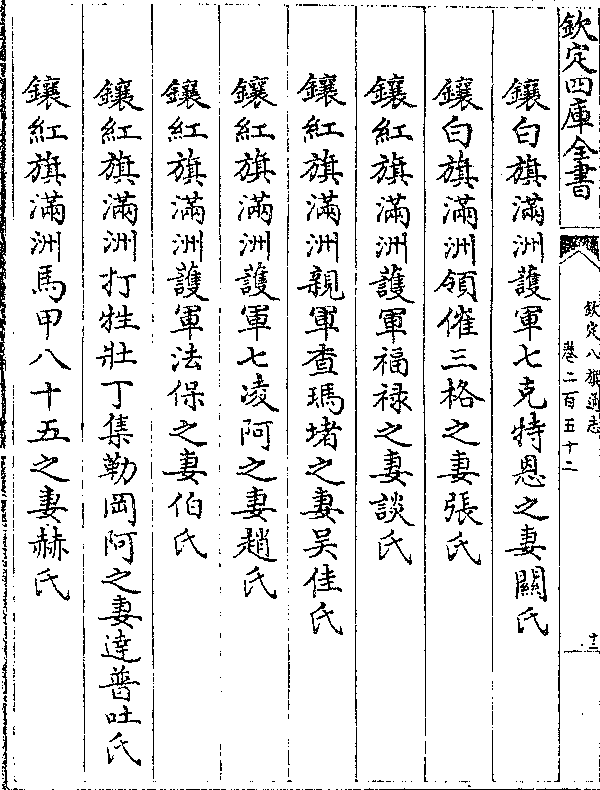 欽定四庫全書
欽定八旗通志
卷二百五十二
十三
鑲白旗滿洲護軍七克特恩之妻關氏
鑲白旗滿洲領催三格之妻張氏
鑲紅旗滿洲護軍福禄之妻談氏
鑲紅旗滿洲親軍查瑪堵之妻吴佳氏
鑲紅旗滿洲護軍七凌阿之妻趙氏
鑲紅旗滿洲護軍法保之妻伯氏
鑲紅旗滿洲打牲壯丁集勒岡阿之妻達普吐氏
鑲紅旗滿洲馬甲八十五之妻赫氏